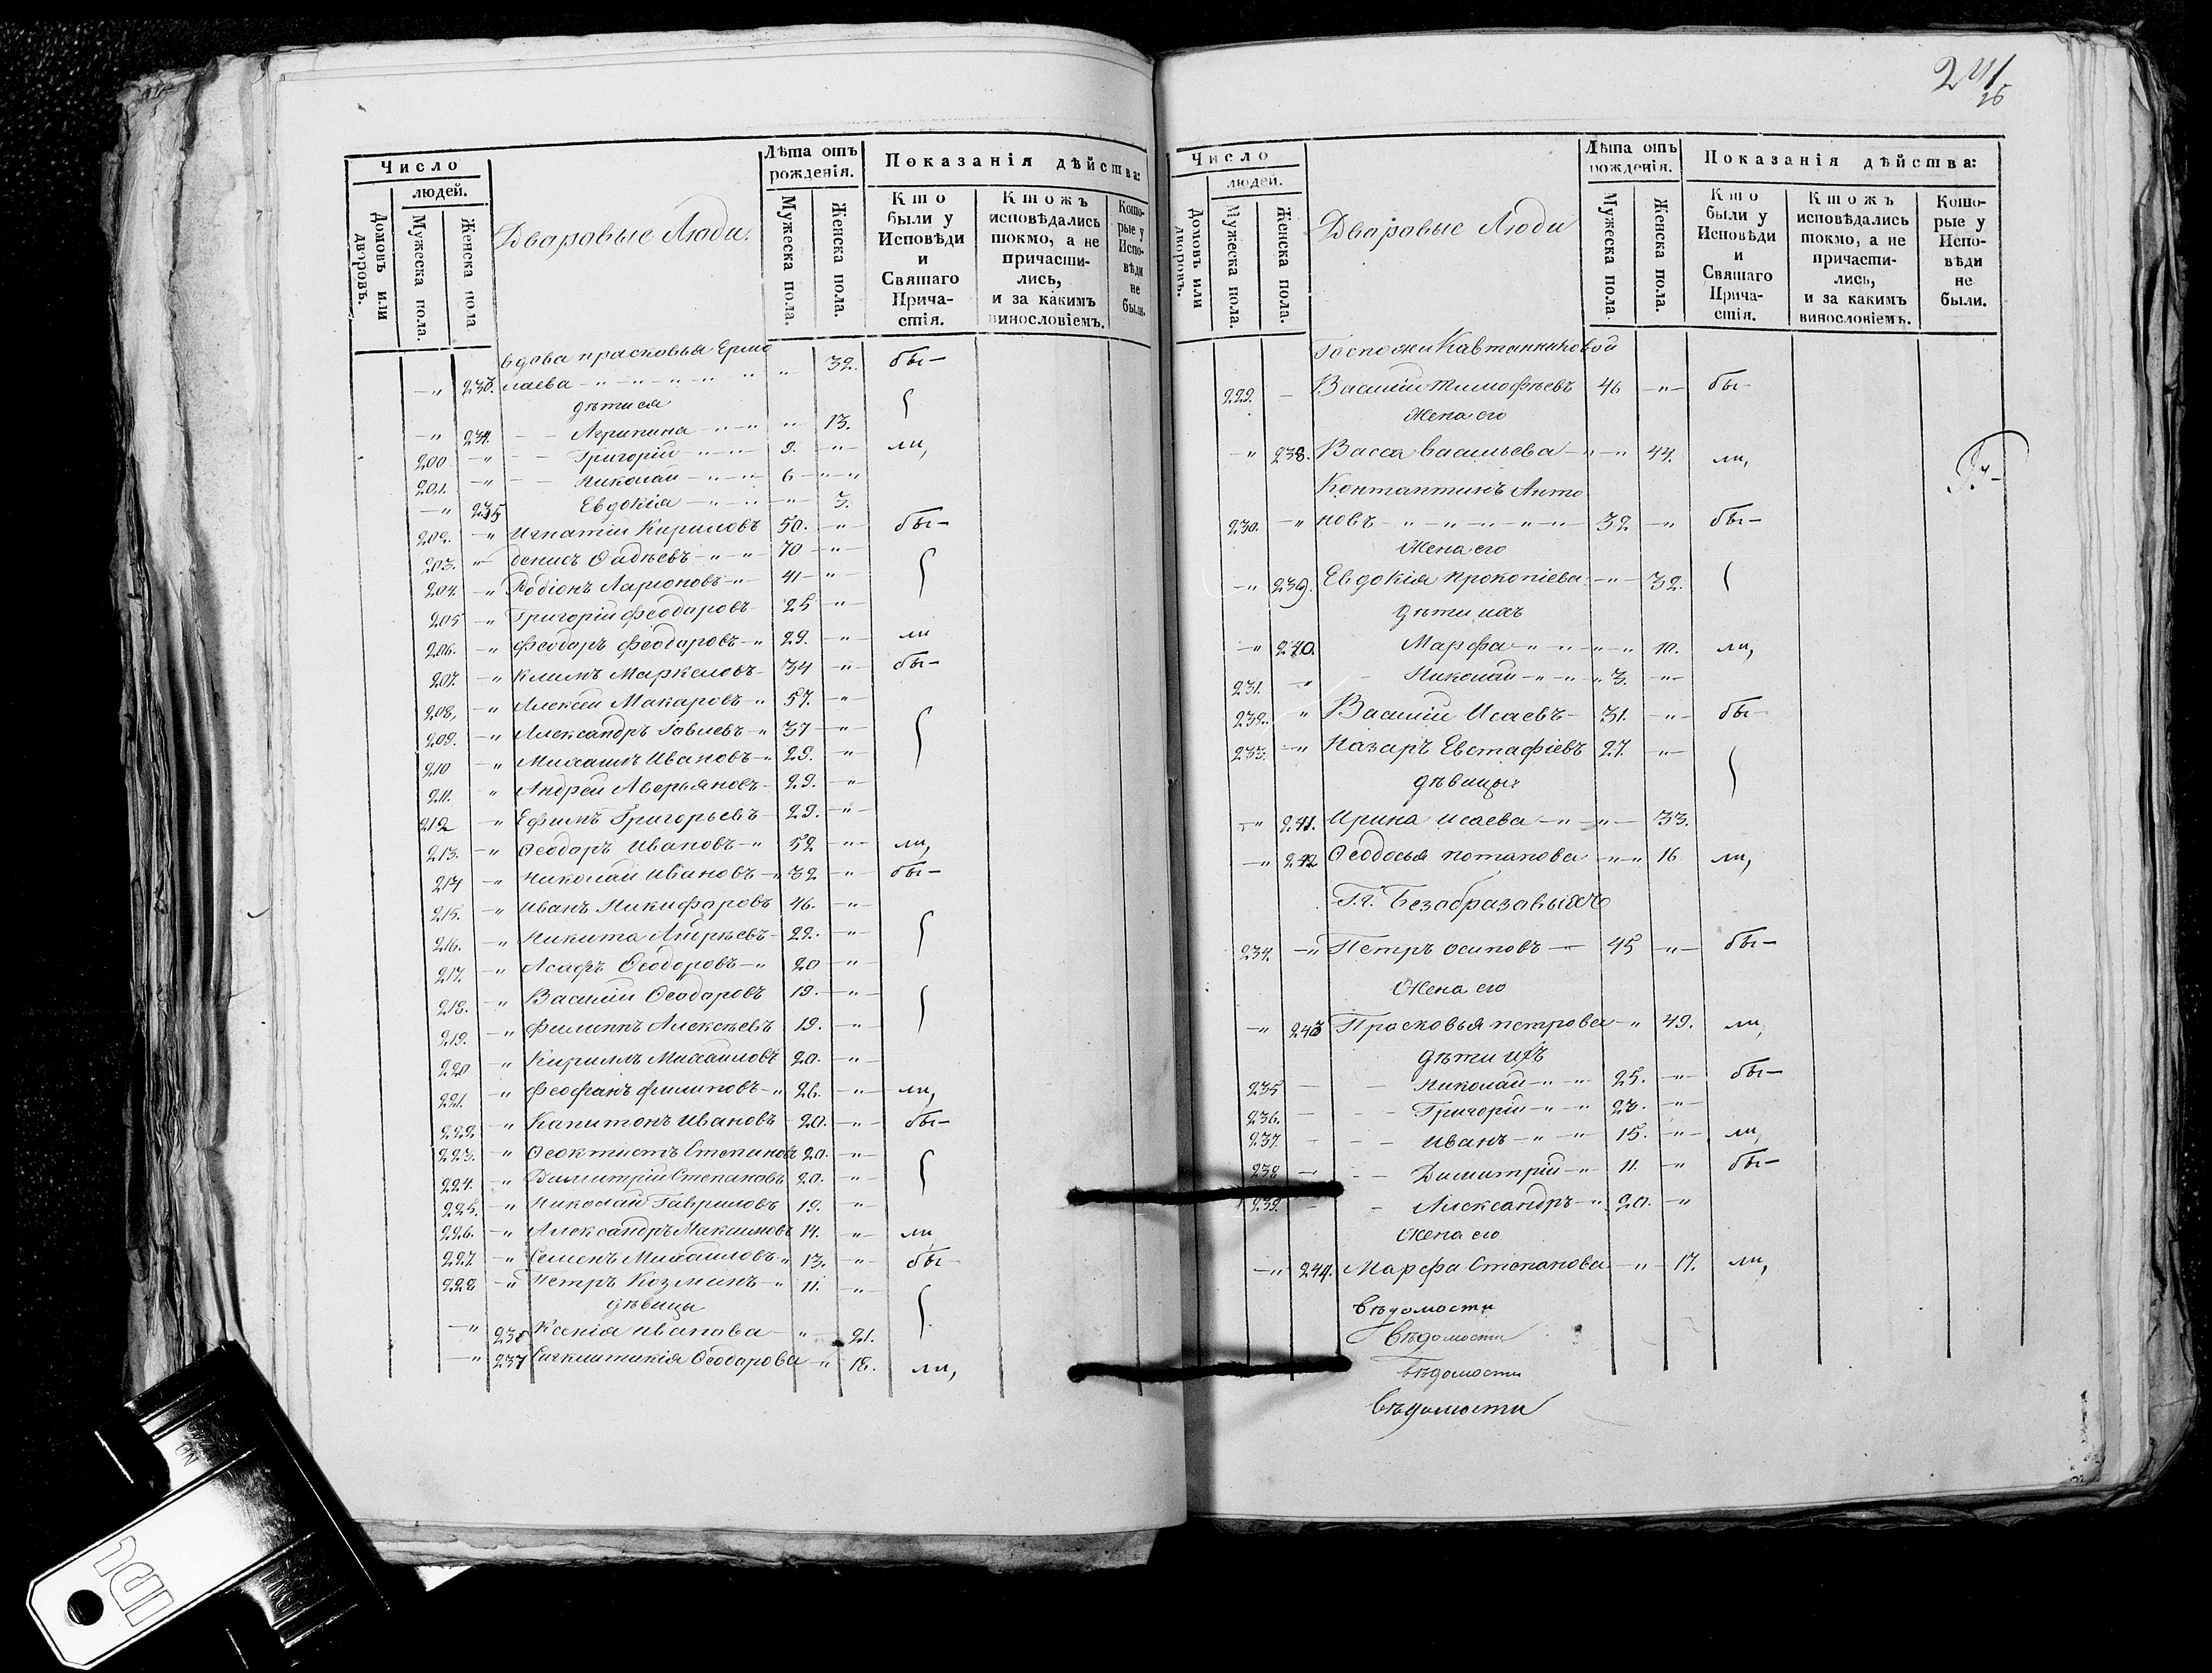 Число
людей.
Домовъ или дворовъ.
Мужеска пола.
Женска пола
Дваровые Люди.
Лѣта отъ рожденія.
Мужеска пола.
Женска пола.
Показанія дѣйства:
Кто были у Исповѣди и Святаго Прича- стія.
Ктожъ исповѣдались токмо, а не причасти- лись, и за какимъ винословіемъ.
Кото- рые у Испо- вѣди не были.
вдова прасковья Ермо
—„ 233. лаева -„-„-„-„- „ 32. бы—
дѣти ея
—„ 234. — Агрипина -„-„ „ 13.
200 —„ — Григорій -„-„- 9. —„— ли,
201. —„ — Николай -„-„- 6 —„—„
—„ 235 Евдокія —„—„ —„— 3.
202. —„ Игнатій Кириловъ 50. —„— бы—
203. „— денисъ Ѳадѣевъ -„-„- 70 —„—
204. —„ Родіонъ Ларіоновъ -„ 41 —„—
205 —„ Григорій Феодаровъ 25 —„—
206. —„ Феодаръ Феодаровъ -„ 29. —„— ли
207. —„ Климъ Маркеловъ 34 —„— бы—
208, —„ Алексей Макаровъ -„ 57. —„
209. —„ Александръ Іовлевъ -„ 37 —„—
210 —„ Михаилъ Ивановъ -„ 29. —„
211. „ Андрей Аверьяновъ 29. —„
212 —„ Ефимъ Григорьевъ 29. —„—
213. —„ Ѳеодаръ Ивановъ -„ 52 —„— ли,
214 —„ Николай Ивановъ -„ 32 —„— бы—
215. —„ Иванъ Никифаровъ 46. —„—
216. —„ Никита Андрѣевъ 22. —„—
217. —„ Асафъ Ѳеодоровъ -„ 20 —„—
218. —„ Василій Ѳеодаровъ 19. —„—
219. —„ Филиппъ Алексѣевъ 19. —„—
220 —„ Кириллъ Михаиловъ 20. —„—
221. —„ Феофанъ филиповъ -„ 26. —„— ли,
222 —„ Капитонъ Ивановъ 20. —„— бы—
223. —„ Ѳеоктистъ Степановъ 20. —„—
224. —„ Димитрій Степановъ 20. —„
225. —„ Николай Гавриловъ 19. —„—
226. —„ Александръ Максимовъ 14. —„— ли
227 —„ Семенъ Михаиловъ -„ 13. —„— бы
228 —„ Петръ Козминъ -„ 11. —„—
дѣвицы
—„ Ксенія иванова „ 21.
—„ 237 Сигклитикія Ѳеодорова „ 18. ли,
241
26
Число
людей.
Домовъ или дворовъ.
Мужеска пола.
Женска пола.
Дваровые Люди
Лѣта отъ рожденія.
Мужеска пола.
Женска пола.
Показанія дѣйства:
Кто были у Исповѣди и Святаго Прича- стія.
Ктожъ исповѣдались токмо, а не причасти- лись, и за какимъ винословіемъ.
Кото- рые у Испо- вѣди не были.
Госпожи Кавтанниковой
229. — Василій тимофѣевъ 46 —„— бы—
Жена его
—„ 238. Васса васильева —„—„ 44. ли,
Контантинъ Анто
230. —„ новъ -„-„-„-„-„- 32 —„ бы—
Жена его
—„ 239. Евдокія прокопіева —„— 32.
дѣти ихъ
—„ 240. Марфа -„-„ „—„ 10. ли,
231. —„ Николай -„-„ 3. —„—
232. „ Василій Исаевъ— 31. —„— бы—
233. —„ Назаръ Евстафіевъ 27. „—
дѣвицы
—„ 241. Ирина исаева —„ —„— 33.
—„ 242 Ѳеодосья потапова —„—„ 16 ли,
Г.г. Безабразавыхъ
234. —„ Петръ осиповъ — 45 „— бы—
Жена его
—„ 243 Прасковья петрова —„ 49. ли,
дѣти ихъ
235 — — Николай -„-„ 25. —„— бы—
236. — — Григорій -„-„ 23. —„
237. — — Иванъ -„-„ 15. —„— ли,
238 — — Димитрій -„ 11. —„ бы—
239. — Александръ -„ 20. —„
Жена его
—„ 244. Марфа Степанова —„— 17. ли,
вѣдомости
вѣдомости
вѣдомости
вѣдомости